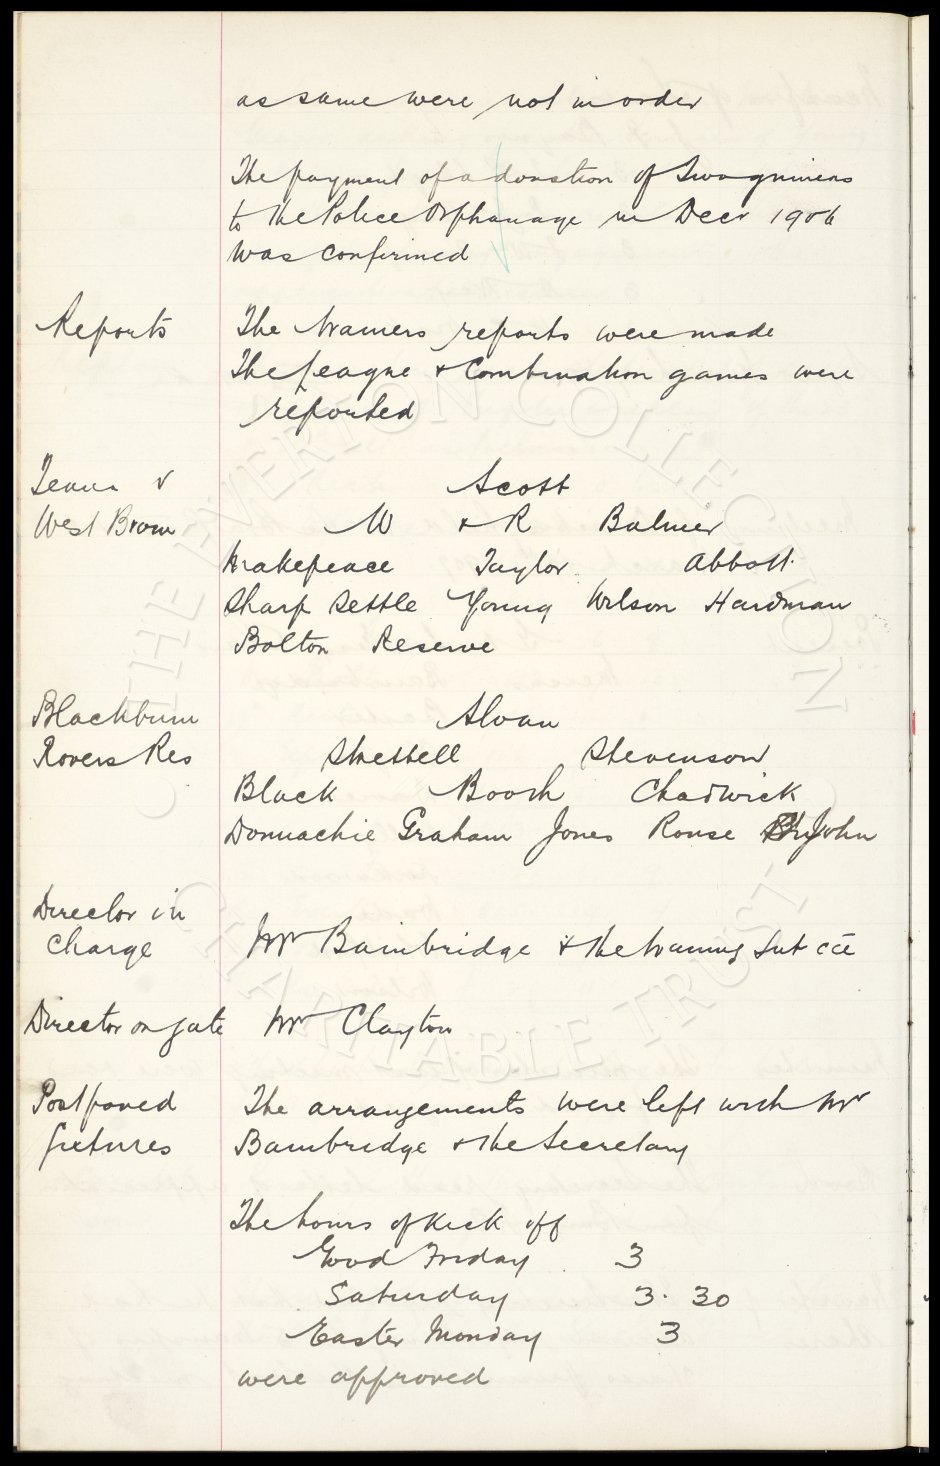 as same were not in order
The payment of a donation of Two guineas
to the Police Orphanage in Decr 1906
was confirmed
Reports The Trainers reports were made
The League & Combination games were
reported
Teams v Scott
West Brom W & R Balmer
Makepeace Taylor Abbott
Sharp Settle Young Wilson Hardman
Bolton Reserve
Blackburn Sloan
Rovers Res Strettell Stevenson
Black Booth Chadwick
Donnachie Graham Jones Rouse John
Director in
Charge Mr Bainbridge & the Training Sub Cee
Director on gate Mr Clayton
Postponed The arrangements were left with Mr
fixtures Bainbridge & the Secretary
The hours of Kick off
Good Friday 3
Saturday 3.30
Easter Monday 3
were approved
THE EVERTON COLLECTION
CHARITABLE TRUST